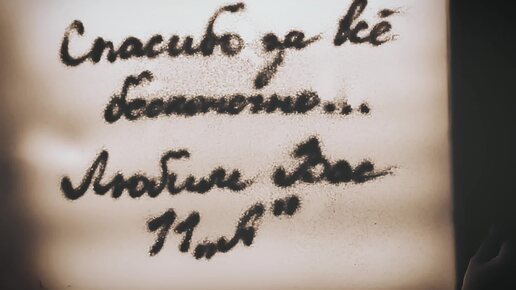 Спасибо за всё
бесконечно...
Любим Вас
11 "А"